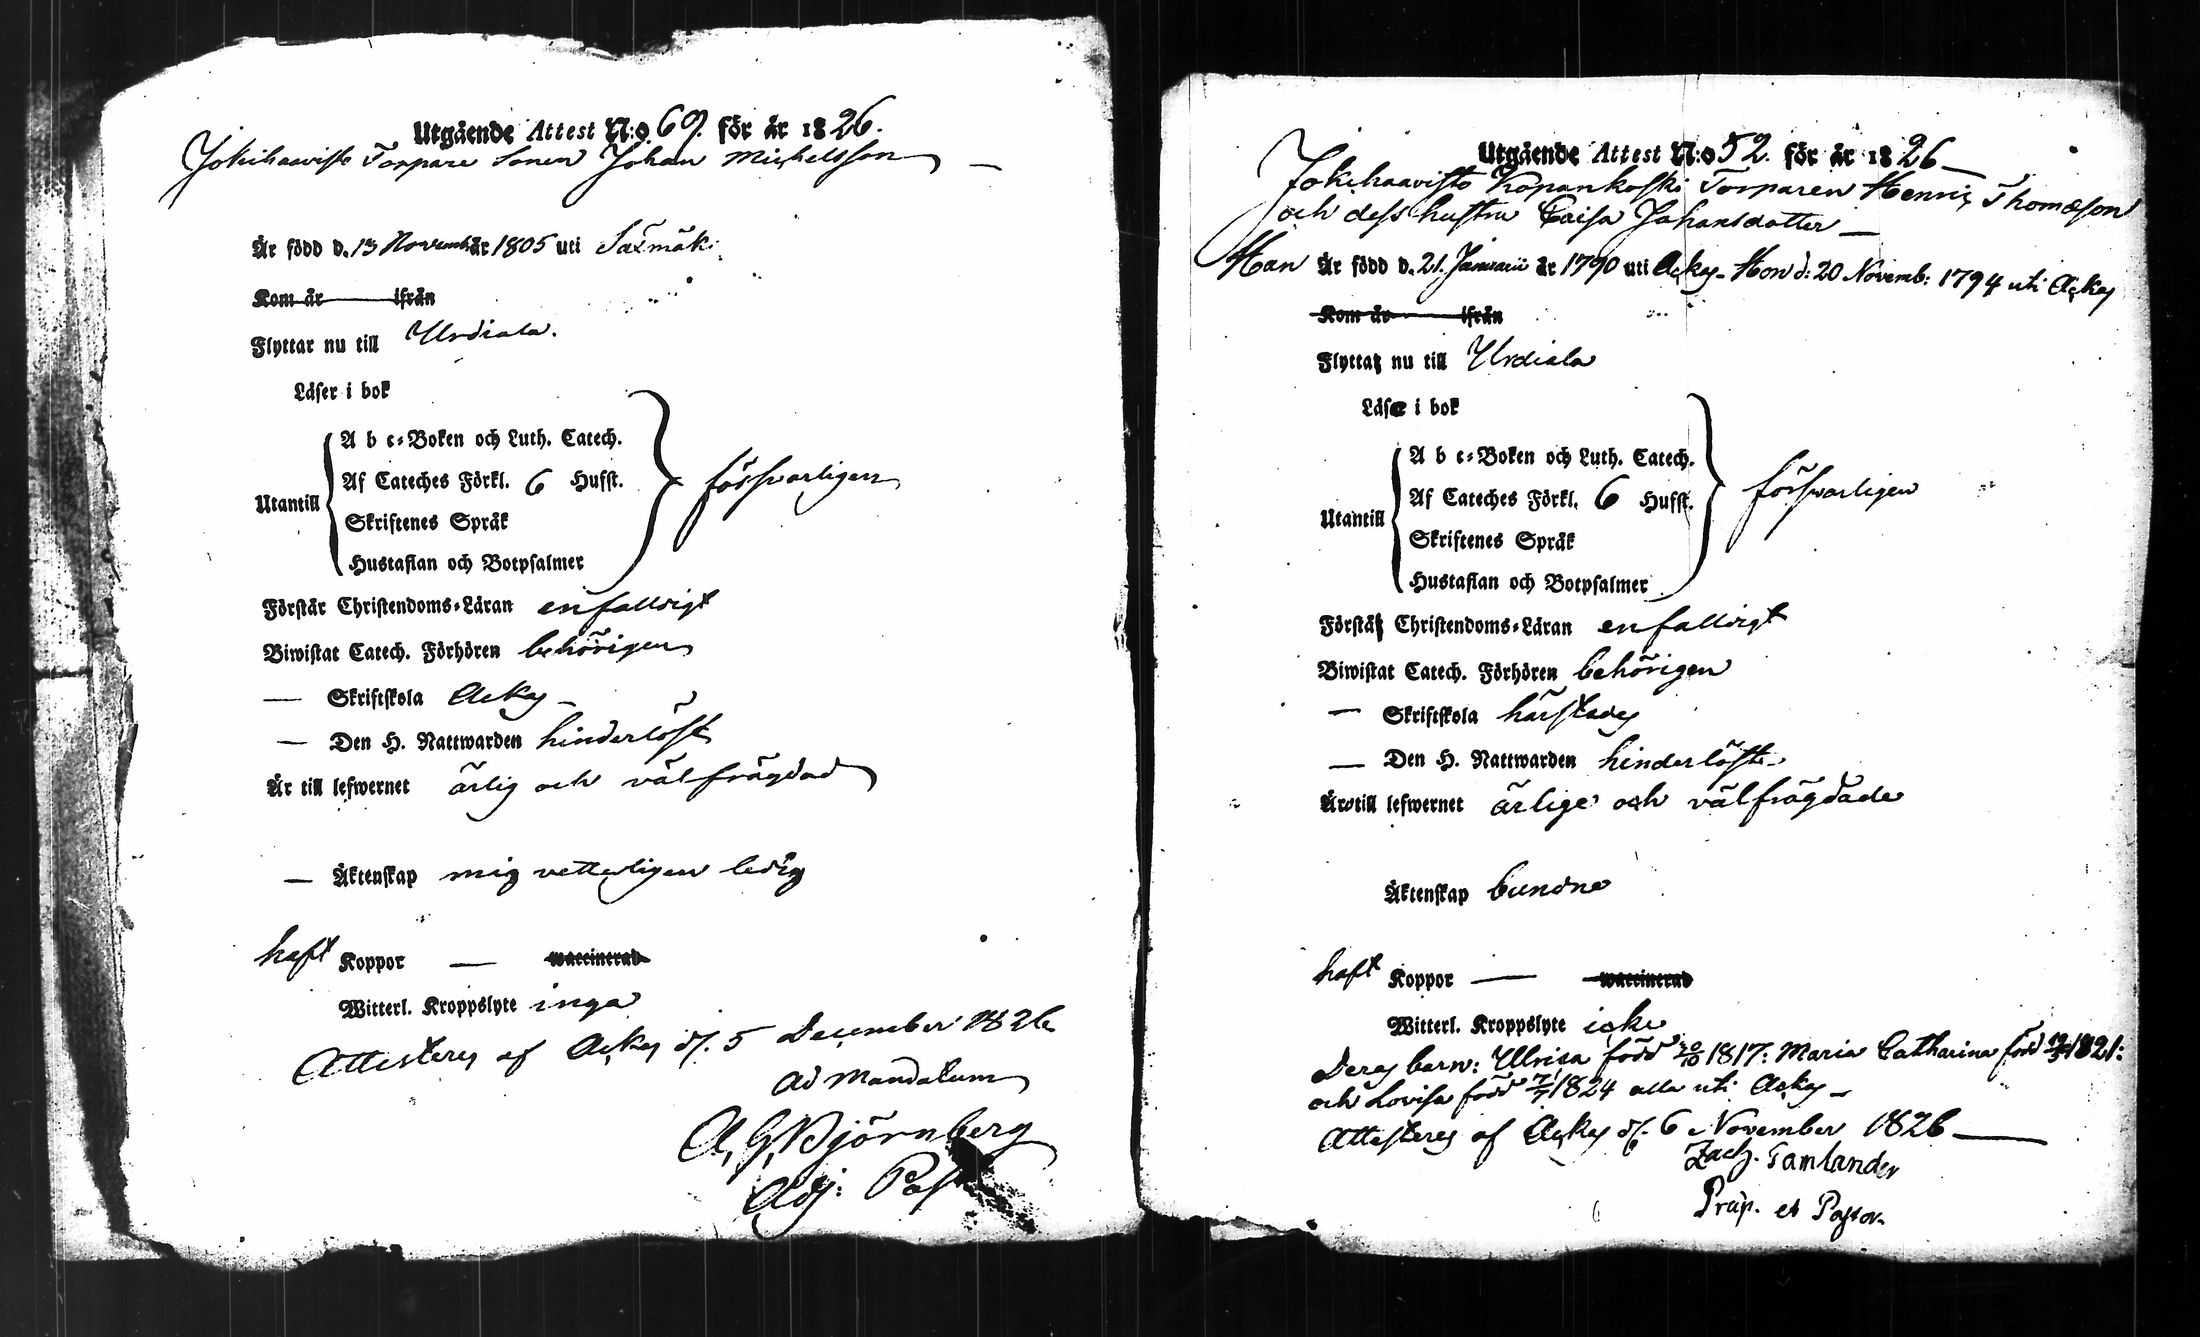 Utgående Attest N:o 69. för år 1826.
Jokihaavisto Torpare Sonen Johan Michelsson
Är född d. 13 Novemb. år 1805 uti Säxmäki
Kom år ifrån
Flyttar nu till Urdiala.
Läser i bok
A b c-Boken och Luth. Catech.
Af Cateches Förkl. 6 Hufst.
Utantill
försvarligen
Skriftenes Språk
Hustaflan och Botpsalmer
Förstår Christendoms-Läran enfalldigt
Biwistat Catech. Förhören behörigen
— Skriftskola Ackas
— Den H. Nattwarden hinderlöst
Är till lefwernet ärlig och välfrägdad
— Äktenskap mig vetterligen ledig
haft Koppor — waccinerad
Witterl. Kroppslyte inga
Attesteras af Ackas d. 5 December 1826
ad mandatum
A. G. Björnberg
Adj: Past
Utgående Attest N:o 52. för år 1826
Jokihaavisto Kopankoski Torparen Henric Thomasson
och dess hustru Caisa Johansdotter —
Han Är född d. 21. Januarii år 1790 uti Ackas Hon d: 20 Novemb: 1794 uti Ackas
Kom år ifrån
Flytta nu till Urdiala
Läsa i bok
A b c-Boken och Luth. Catech.
Af Cateches Förkl. 6 Hufst.
Utantill
försvarligen
Skriftenes Språk
Hustaflan och Botpsalmer
Förstå Christendoms-Läran enfalldigt
Biwistat Catech. Förhören behörigen
— Skriftskola härstädes
— Den H. Nattwarden hinderlöste
Äro till lefwernet ärlige och välfrägdade
Äktenskap bundne
haft Koppor — waccinerad
Witterl. Kroppslyte icke
Deras barn: Ulrica född 20/10 1817: Maria Catharina född 1821:
och Lovisa född 1824 alla uti Ackas —
Attesteras af Ackas d. 6 November 1826 —
Zach. Tamlander
Præp. et Pastor.